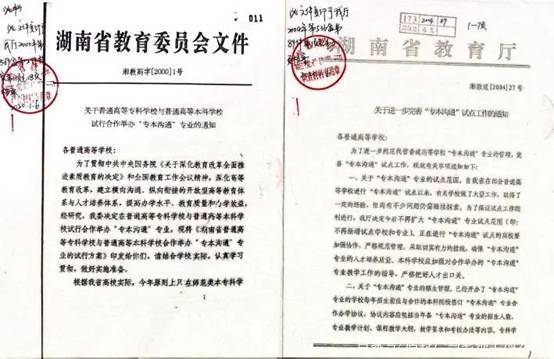 011
湖南省教育委员会文件
湘教药字[2000]1号
关于普通高等专科学校与普通高等本科学校
试行合作举办“专本沟通”专业的通知
各普通高等学校：
为了贯彻中共中央国务院《关于深化教育改革全面推
进素质教育的决定》和全国教育工作会议精神，深化高等
教育改革，建立横向沟通、纵向衔接的开放型高等教育体
系与人才培养体系，提高办学水平、教育质量和办学效益，
经研究，我委决定在普通高等专科学校与普通高等本科学
校试行合作举办“专本沟通”专业。现将《湖南省普通高
等专科学校与普通高等本科学校合作举办“专本沟通”专
业的试行方案》印发给你们，请结合学校实际，认真学习
贯彻，做好实施准备。
根据我省高校实际，今年原则上只在师范类本专科学
湖南省教育厅
湘教通[2004]27号
关于进一步完善“专本沟通”试点工作的通知
各普通高等学校：
为了进一步规范我省普通高校“专本沟通”专业的管理，完
善“专本沟通”试点工作，现就有关事项通知如下：
一、关于“专本沟通”专业的试点范围。自我省在部分普通高
等学校进行“专本沟通”试点以来，有关学校做了大量工作，取得了
一定的经验，但尚有不少问题仍需继续探索。为了保证试点工作顺
利进行，我厅决定今后不再扩大“专本沟通”专业试点范围（即：
不再新增试点学校和专业），正在进行“专本沟通”试点的高校要
加强协作，严格规范管理，采取切实有力的措施，确保“专本沟通”
专业的人才培养质量。本科学校应加强对合作举办的“专本沟通”
专业教学工作的指导，严格把好人才出口关。
二、关于“专本沟通”专业的招生管理。已经开办了“专本沟通”
专业的学校每年招生前应与合作的本科院校签订“专本沟通”专业合
作办学协议，协议内容应包括当年各“专本沟通”专业的招生人数、
专业教学计划、课程教学大纲、教学要求和考核办法等内容。专科学